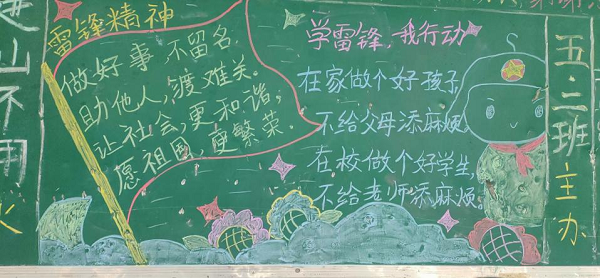 进山不用
火
雷锋精神
做好事,不留名,
助他人,渡难关。
让社会,更和谐;
愿祖国,更繁荣。
学雷锋,我行动
在家做个好孩子,
不给父母添麻烦。
在校做个好学生,
不给老师添麻烦。
五.二班主办